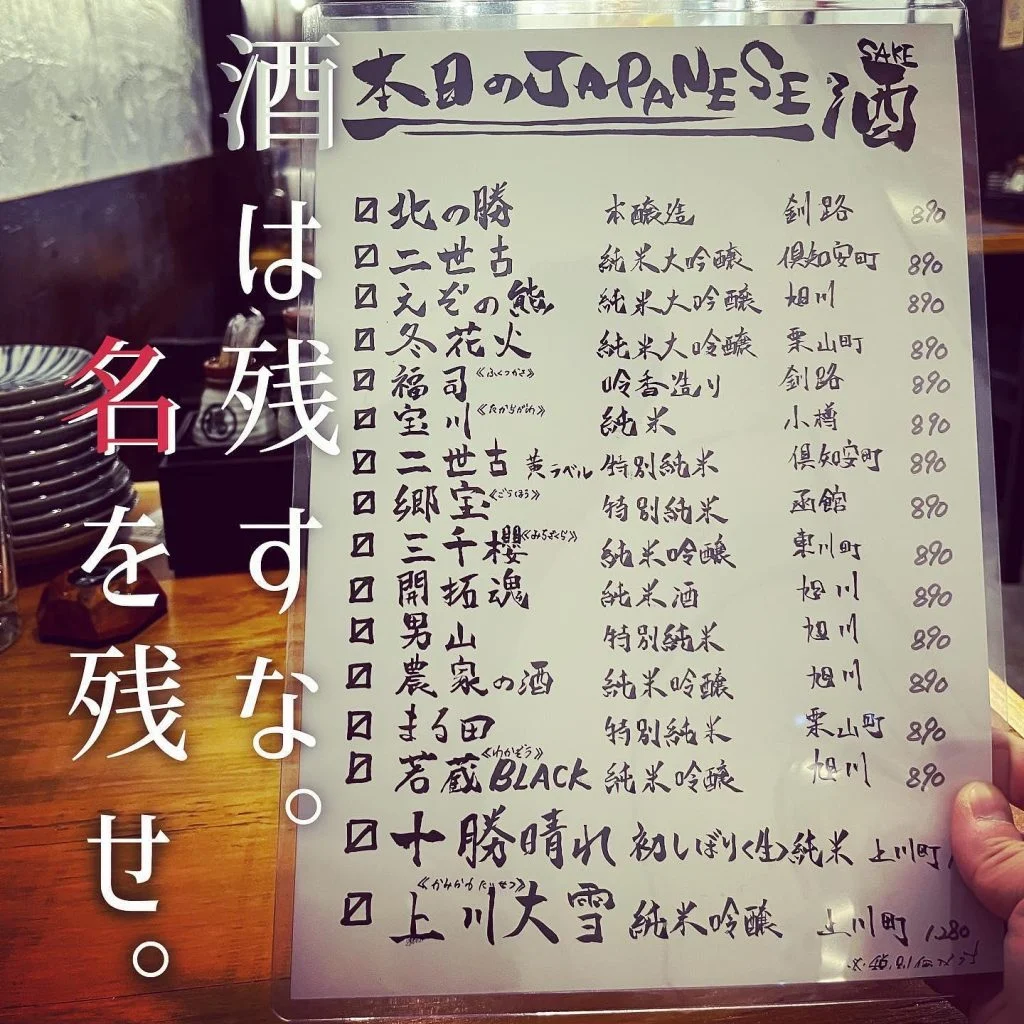 酒は残すな。
名を残せ。
本日のJAPANESE酒
SAKE
〼 北の勝 本醸造 釧路 890
〼 二世古 純米大吟醸 倶知安町 890
〼 えぞの熊 純米大吟醸 旭川 890
〼 冬花火 純米大吟醸 栗山町 890
〼 福司《ふくつかさ》 吟香造り 釧路 890
〼 宝川《たからがわ》 純米 小樽 890
〼 二世古 黄ラベル 特別純米 倶知安町 890
〼 郷宝《ごっほう》 特別純米 函館 890
〼 三千櫻《みちざくら》 純米吟醸 東川町 890
〼 開拓魂 純米酒 旭川 890
〼 男山 特別純米 旭川 890
〼 農家の酒 純米吟醸 旭川 890
〼 まる田 特別純米 栗山町 890
〼 若蔵《わかぞう》BLACK 純米吟醸 旭川 890
〼 十勝晴れ 初しぼり〈生〉純米 上川町
〼 上川大雪《かみかわたいせつ》 純米吟醸 上川町 1280